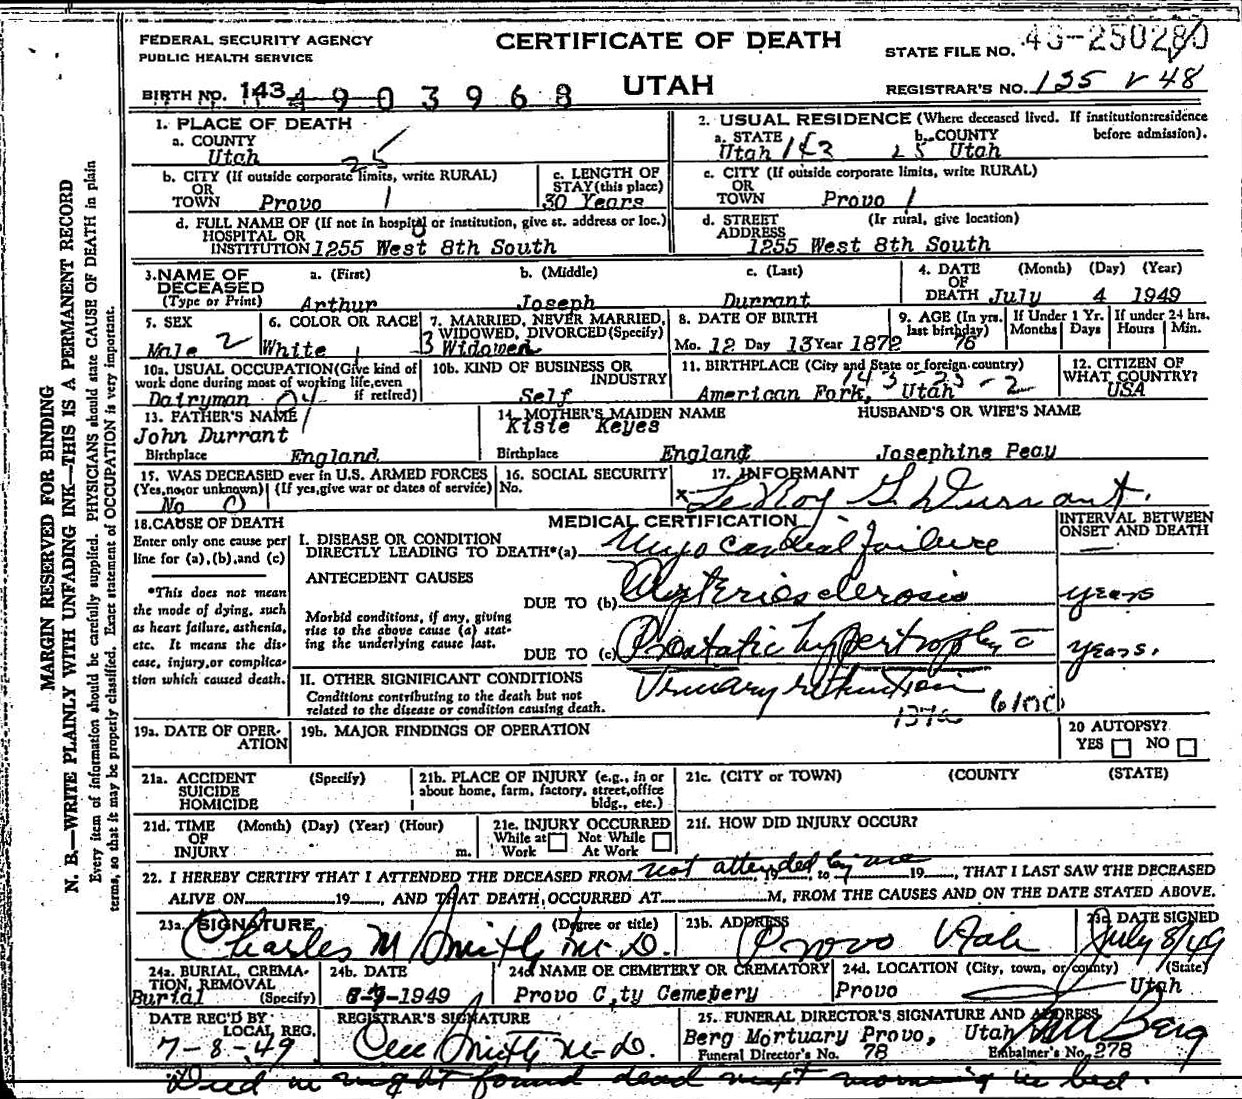 FEDERAL SECURITY AGENCY
PUBLIC HEALTH SERVICE
CERTIFICATE OF DEATH
UTAH
STATE FILE NO.
BIRTH NO. 143 4903968
REGISTRAR'S NO. 135 v 48
1. PLACE OF DEATH
a. COUNTY
Utah 25
2. USUAL RESIDENCE (Where deceased lived. If institution:residence before admission).
a. STATE b. COUNTY
Utah 143 25 Utah
b. CITY (If outside corporate limits, write RURAL)
OR
TOWN Provo 1
c. LENGTH OF
STAY (this place)
30 Years
c. CITY (If outside corporate limits, write RURAL)
OR
TOWN Provo 1
d. FULL NAME OF (If not in hospital or institution, give st. address or loc.)
HOSPITAL OR
INSTITUTION 1255 West 8th South
d. STREET (If rural, give location)
ADDRESS
1255 West 8th South
3. NAME OF DECEASED
(Type or Print)
a. (First) b. (Middle) c. (Last)
Arthur Joseph Durrant
4. DATE OF DEATH (Month) (Day) (Year)
July 4 1949
5. SEX
Male 2
6. COLOR OR RACE
White 1
7. MARRIED, NEVER MARRIED, WIDOWED, DIVORCED (Specify)
3 Widowed
8. DATE OF BIRTH
Mo. 12 Day 13 Year 1872
9. AGE (In yrs. last birthday)
76
If Under 1 Yr. Months Days
If under 24 hrs. Hours Min.
10a. USUAL OCCUPATION (Give kind of work done during most of working life, even if retired)
Dairyman
10b. KIND OF BUSINESS OR INDUSTRY
Self
11. BIRTHPLACE (City and State or foreign country)
American Fork, Utah
12. CITIZEN OF WHAT COUNTRY?
USA
13. FATHER'S NAME
John Durrant
Birthplace England
14. MOTHER'S MAIDEN NAME
Kisie Keyes
Birthplace England
HUSBAND'S OR WIFE'S NAME
Josephine Peay
15. WAS DECEASED ever in U.S. ARMED FORCES
(Yes, no, or unknown) (If yes, give war or dates of service)
No 0
16. SOCIAL SECURITY
No.
17. INFORMANT
x LeRoy G. Durrant.
18. CAUSE OF DEATH
Enter only one cause per line for (a), (b), and (c)
*This does not mean the mode of dying, such as heart failure, asthenia, etc. It means the disease, injury, or complication which caused death.
MEDICAL CERTIFICATION
INTERVAL BETWEEN ONSET AND DEATH
I. DISEASE OR CONDITION
DIRECTLY LEADING TO DEATH* (a) Myocardial failure —
ANTECEDENT CAUSES
DUE TO (b) Arteriosclerosis years
Morbid conditions, if any, giving rise to the above cause (a) stating the underlying cause last.
DUE TO (c) Prostatic hypertrophy c̄ years.
II. OTHER SIGNIFICANT CONDITIONS
Conditions contributing to the death but not related to the disease or condition causing death.
Urinary retention
19a. DATE OF OPERATION
19b. MAJOR FINDINGS OF OPERATION
20 AUTOPSY?
YES NO
21a. ACCIDENT (Specify)
SUICIDE
HOMICIDE
21b. PLACE OF INJURY (e.g., in or about home, farm, factory, street, office bldg., etc.)
21c. (CITY or TOWN) (COUNTY) (STATE)
21d. TIME OF INJURY (Month) (Day) (Year) (Hour)
m.
21e. INJURY OCCURRED
While at Work Not While At Work
21f. HOW DID INJURY OCCUR?
22. I HEREBY CERTIFY THAT I ATTENDED THE DECEASED FROM not attended by me, to 19 , THAT I LAST SAW THE DECEASED
ALIVE ON 19 , AND THAT DEATH OCCURRED AT M, FROM THE CAUSES AND ON THE DATE STATED ABOVE.
23a. SIGNATURE (Degree or title)
Charles M Smith, M.D.
23b. ADDRESS
Provo Utah
23c. DATE SIGNED
July 8/49
24a. BURIAL, CREMATION, REMOVAL
Burial (Specify)
24b. DATE
-1949
24c NAME OF CEMETERY OR CREMATORY
Provo City Cemetery
24d. LOCATION (City, town, or county) (State)
Provo Utah
DATE REC'D BY LOCAL REG.
7-8-49
REGISTRAR'S SIGNATURE
Smith M-D.
25. FUNERAL DIRECTOR'S SIGNATURE AND ADDRESS
Berg Mortuary Provo, Utah Berg
Funeral Director's No. 78 Embalmer's No. 278
Died in night found dead next morning in bed.
MARGIN RESERVED FOR BINDING
N. B.—WRITE PLAINLY WITH UNFADING INK—THIS IS A PERMANENT RECORD
Every item of information should be carefully supplied. PHYSICIANS should state CAUSE OF DEATH in plain
terms, so that it may be properly classified. Exact statement of OCCUPATION is very important.